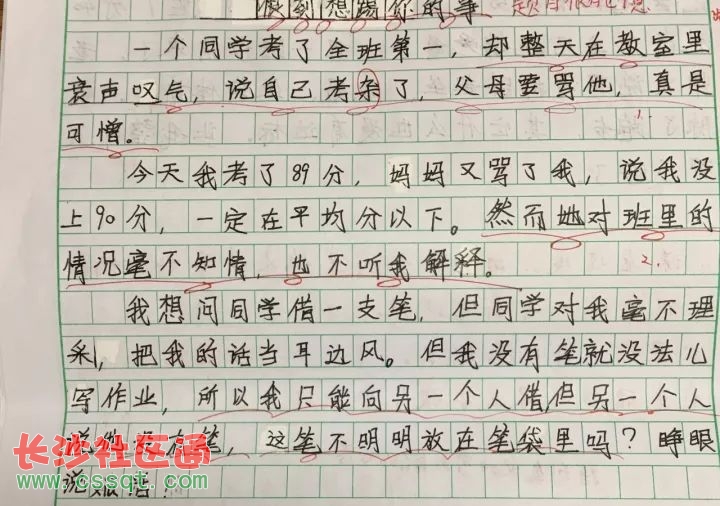 做到想踢你的事 题目很有创意
一个同学考了全班第一，却整天在教室里
哀声叹气，说自己考杂了，父母要骂他，真是
可憎。
1.
今天我考了89分，妈妈又骂了我，说我没
上90分，一定在平均分以下。然而她对班里的
情况毫不知情，也不听我解释。
2.
我想问同学借一支笔，但同学对我毫不理
采，把我的话当耳边风。但我没有笔就没法儿
写作业，所以我只能向另一个人借，但另一个人
说他没有笔，这笔不明明放在笔袋里吗？睁眼
说瞎话！
长沙社区通
www.cssqt.com